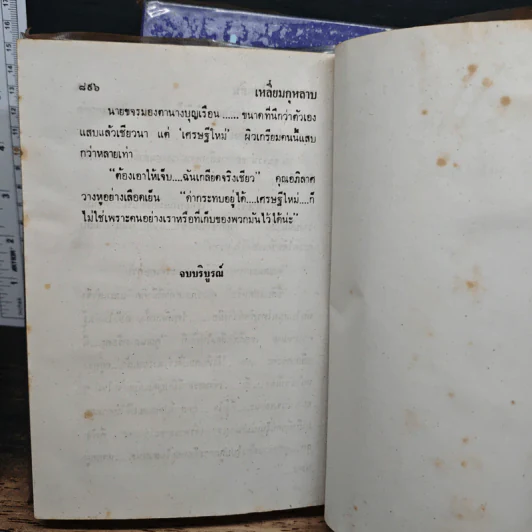 ๘๙๖ เหลี่ยมกุหลาบ
นายขจรมองตานางบุญเรือน ...... ขนาดที่นึกว่าตัวเอง
แสบแล้วเชียวนา แต่ 'เศรษฐีใหม่' ผิวเกรียมคนนี้แสบ
กว่าหลายเท่า
"ต้องเอาให้เจ็บ....ฉันเกลียดจริงเชียว" คุณอภิลาศ
วางหูอย่างเลือดเย็น "ด่ากระทบอยู่ได้....เศรษฐีใหม่....ก็
ไม่ใช่เพราะคนอย่างเราหรือที่เก็บของพวกมันไว้ได้น่ะ"
จบบริบูรณ์